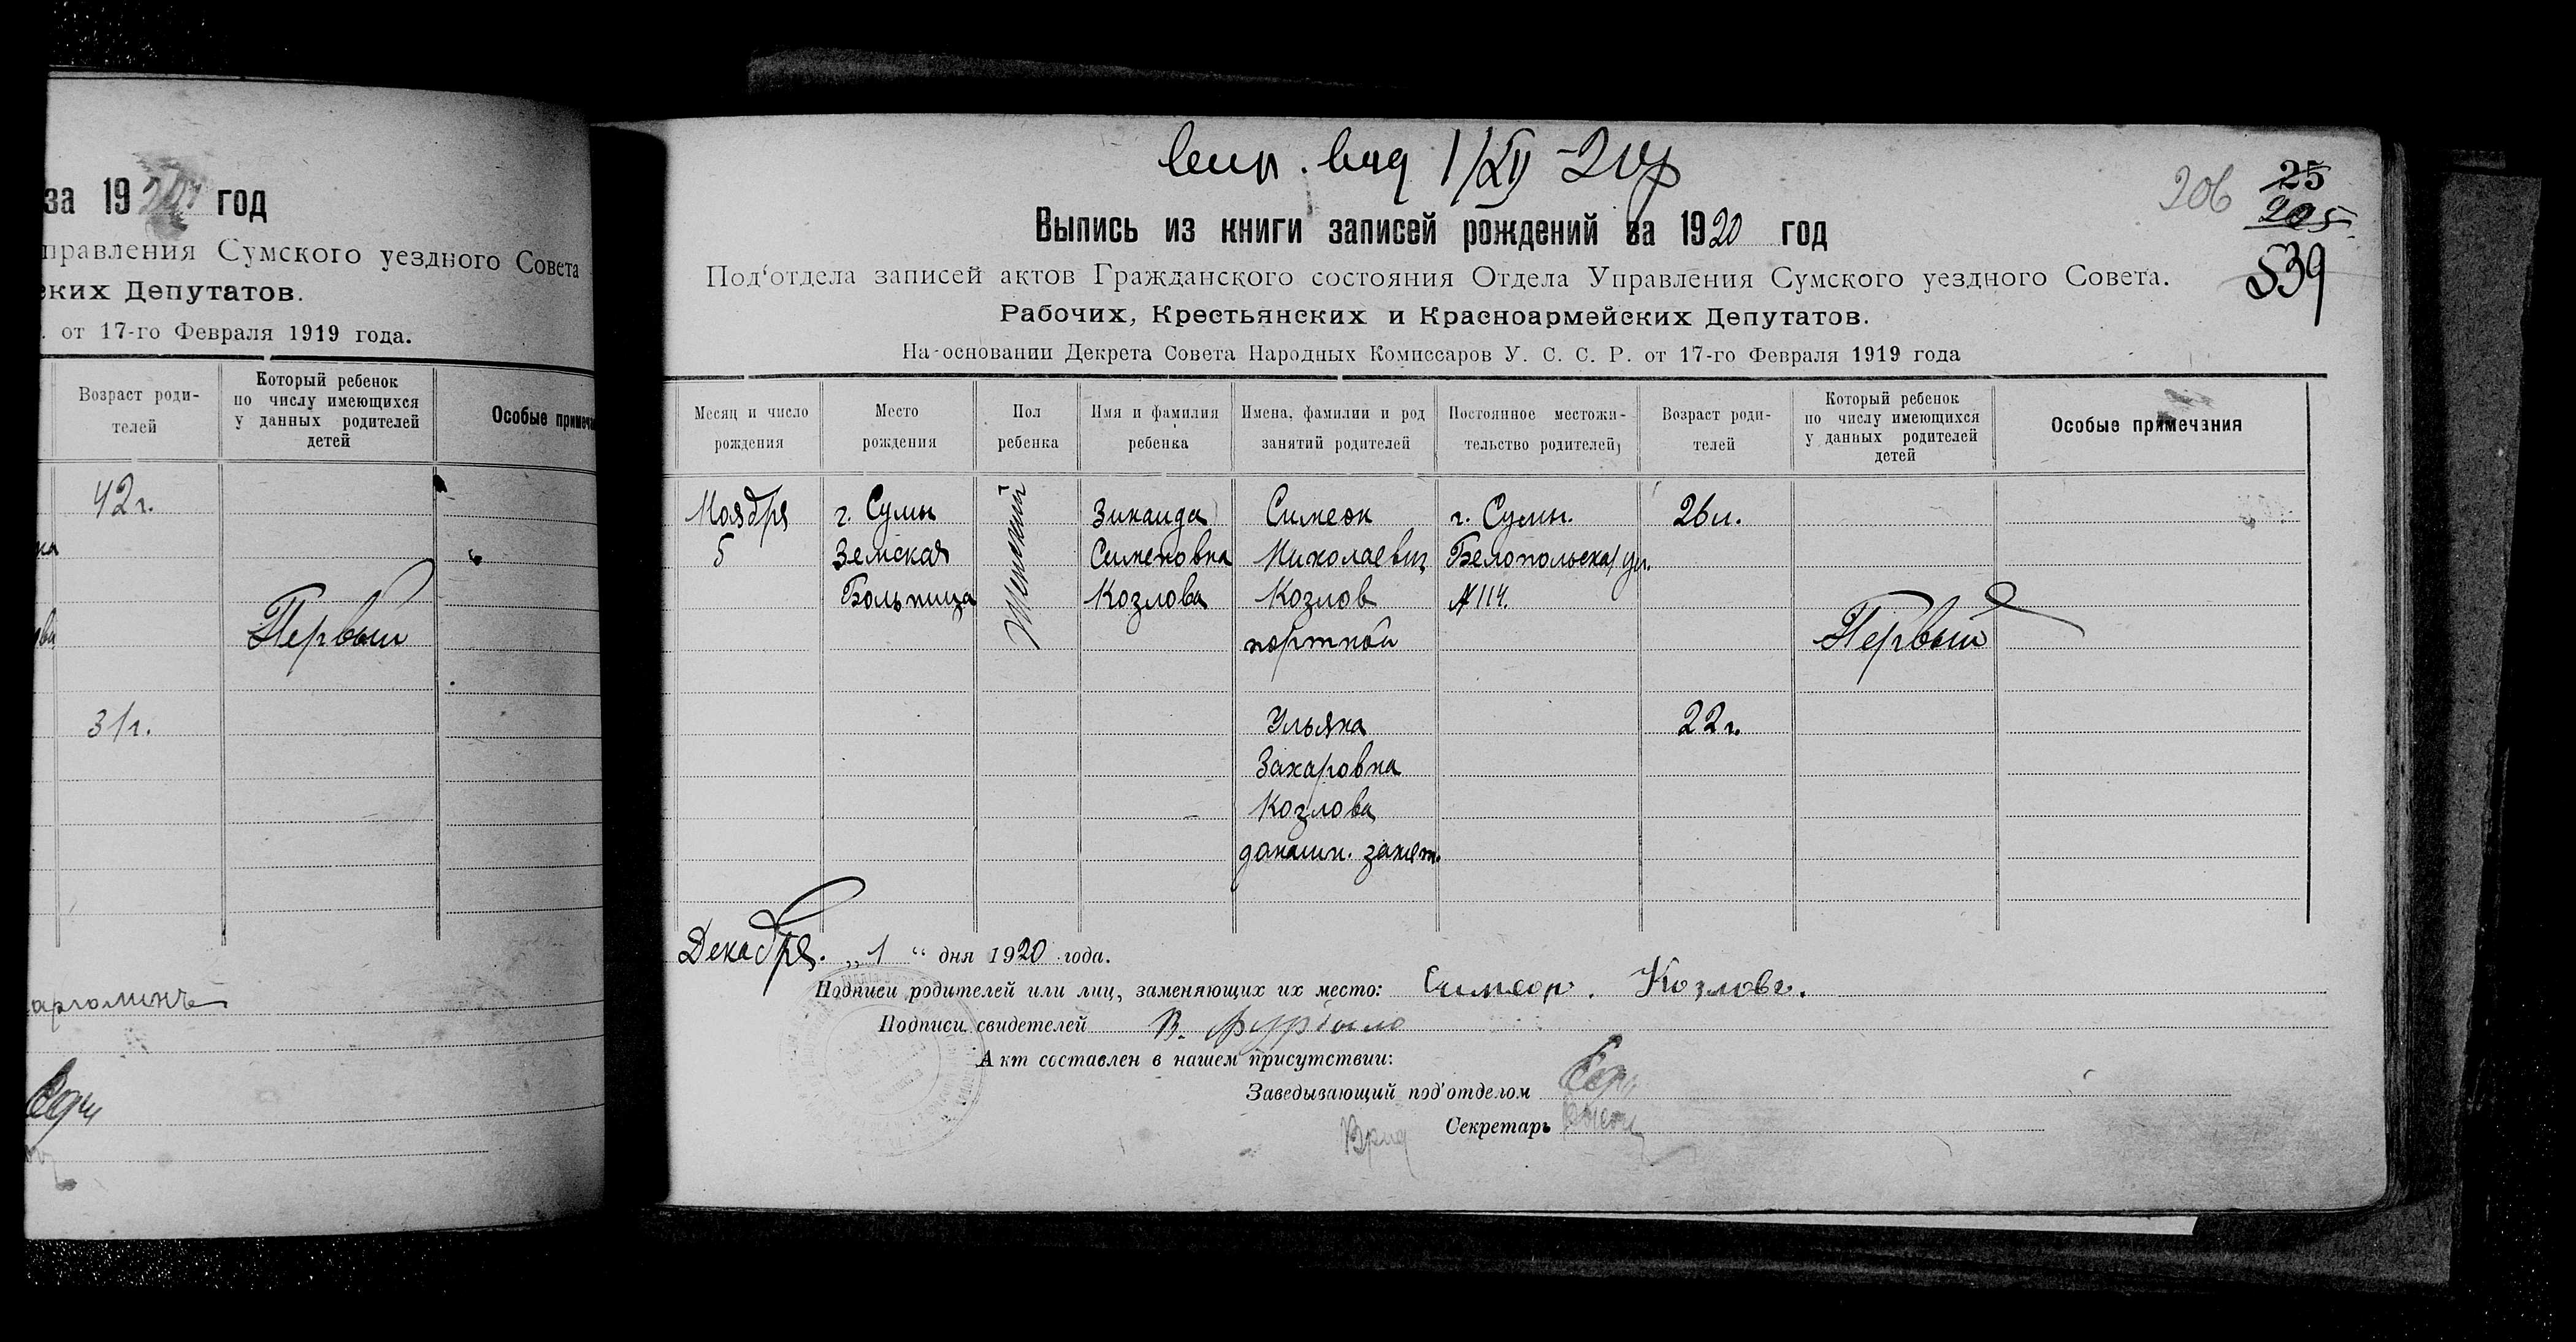 за 1920 год
правления Сумского уездного Совета
ких Депутатов.
. от 17-го Февраля 1919 года.
Возраст роди-
телей
Который ребенок
по числу имеющихся
у данных родителей
детей
Особые примеча
42 г.
Первый
31 г.
1/XII - 20 г
206
25
205
539
Выпись из книги записей рождений за 1920 год
Под‘отдела записей актов Гражданского состояния Отдела Управления Сумского уездного Совета.
Рабочих, Крестьянских и Красноармейских Депутатов.
На основании Декрета Совета Народных Комиссаров У. С. С. Р. от 17-го Февраля 1919 года
Месяц и число
рождения
Место
рождения
Пол
ребенка
Имя и фамилия
ребенка
Имена, фамилии и род
занятий родителей
Постоянное местожи-
тельство родителей
Возраст роди-
телей
Который ребенок
по числу имеющихся
у данных родителей
детей
Особые примечания
Ноября
5
г. Сумы
Земская
Больница
Женский
Зинаида
Сименовна
Козлова
Симеон
Николаевич
Козлов
портной
Ульяна
Захаровна
Козлова
домашн. занят.
г. Сумы.
Белопольская ул.
№ 114.
26 л.
22 г.
Первый
Декабря. „ 1 “ дня 1920 года.
Подписи родителей или лиц, заменяющих их место: Симеон. Козловъ.
Подписи свидетелей В.
Акт составлен в нашем присутствии:
Заведывающий под‘отделом
Врид Секретарь